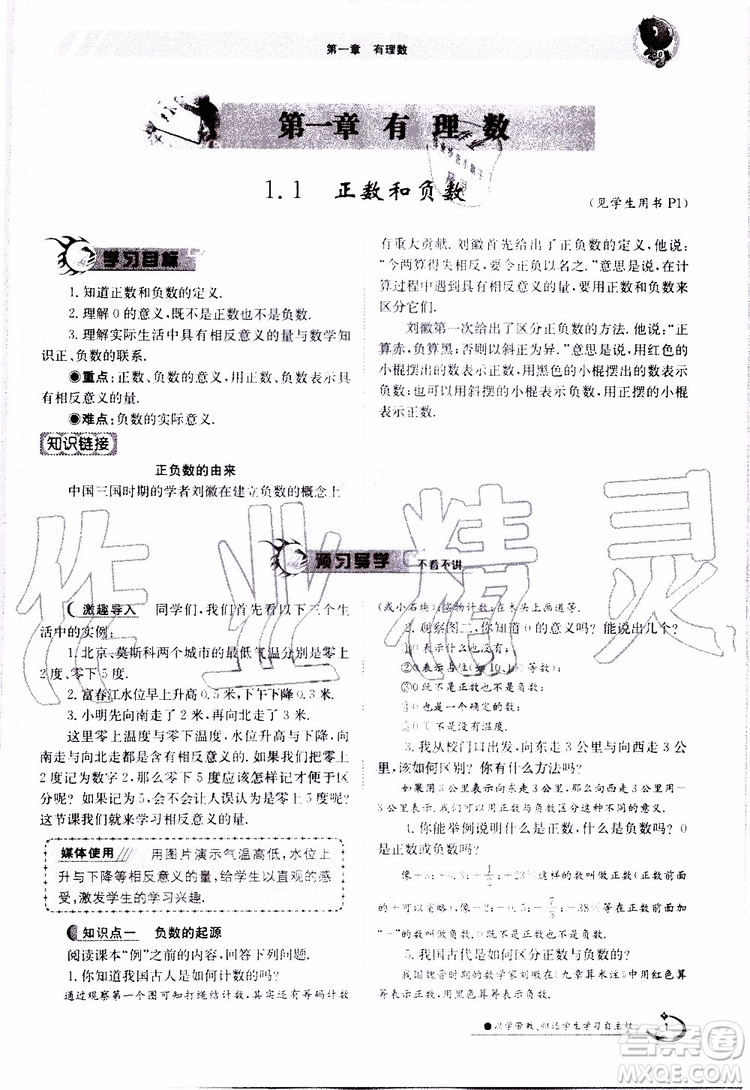 第一章 有理数
第一章 有 理 数
1.1 正数和负数
(见学生用书 P1)
学习目标
1. 知道正数和负数的定义.
2. 理解 0 的意义,既不是正数也不是负数.
3. 理解实际生活中具有相反意义的量与数学知
识正、负数的联系.
◉重点:正数、负数的意义,用正数、负数表示具
有相反意义的量.
◉难点:负数的实际意义.
知识链接
正负数的由来
中国三国时期的学者刘徽在建立负数的概念上
有重大贡献. 刘徽首先给出了正负数的定义,他说:
“今两算得失相反,要令正负以名之.”意思是说,在计
算过程中遇到具有相反意义的量,要用正数和负数来
区分它们.
刘徽第一次给出了区分正负数的方法. 他说:“正
算赤,负算黑;否则以斜正为异.”意思是说,用红色的
小棍摆出的数表示正数,用黑色的小棍摆出的数表示
负数;也可以用斜摆的小棍表示负数,用正摆的小棍
表示正数.
预习导学 不看不讲
激趣导入 同学们,我们首先看以下三个生
活中的实例:
1. 北京、莫斯科两个城市的最低气温分别是零上
2 度、零下 5 度.
2. 富春江水位早上升高 0.5 米,下午下降 0.3 米.
3. 小明先向南走了 2 米,再向北走了 3 米.
这里零上温度与零下温度,水位升高与下降,向
南走与向北走都是具有相反意义的量. 我们把零上
2 度记为数字 2,那么零下 5 度应如何标记才便于区
分呢?如果记为 5,会不会让人误认为是零上 5 度呢?
这节课我们就来学习相反意义的量.
媒体使用 用图片演示气温高低,水位上
升与下降等相反意义的量,给学生以直观的感
受,激发学生的学习兴趣.
知识点一 负数的起源
阅读课本“例”之前的内容,回答下列问题.
1. 你知道我国古人是如何计数的吗?
通过观察第一个图可知打绳结计数,还有等码计数
(或小石块)、实物计数、在木头上画道等.
2. 观察图二,你知道 0 的意义吗?能说出几个?
①0 表示没有;
②0 表示占位(如 10,105 等数);
③0 既不是正数也不是负数;
④0 也是一个确定的数;
⑤0 不是没有温度.
3. 我从校门口出发,向东走 3 公里与向西走 3 公
里,该如何区别?你有什么方法吗?
如果用 3 公里表示向东走 3 公里,那么向西走 3 公里用
-3 公里表示. 我们可以用正数与负数区分意义相反的量.
4. 你能举例说明什么是正数,什么是负数吗?0
是正数吗?
5. 我国古代是如何区分正数与负数的?
我国魏晋时期的数学家刘徽在《九章算术注》中用红色算
筹表示正数,黑色算筹表示负数.
◉以学带教,促进学生学习自主权
1
作业精灵
答案圈